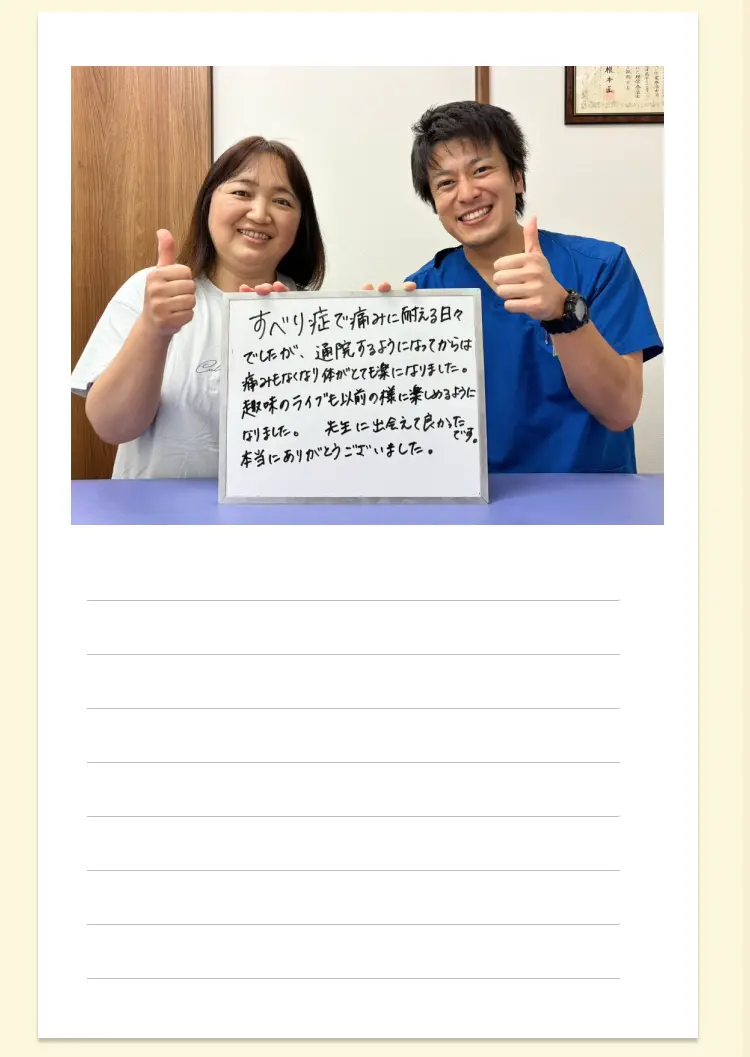 根本匠
すべり症で痛みに耐える日々
でしたが、通院するようになってからは
痛みもなくなり体がとても楽になりました。
趣味のライブも以前の様に楽しめるように
なりました。 先生に出会えて良かった
です。
本当にありがとうございました。